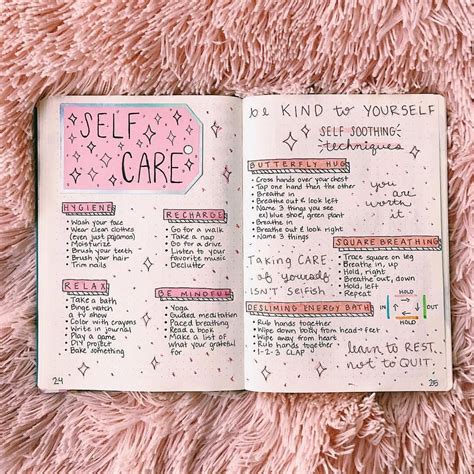 SELF
CARE
HYGIENE
• Wash your face
• Wear clean clothes
(even just pajamas)
• Moisturize
• Brush your teeth
• Brush your hair
• Trim nails
RECHARGE
• Go for a walk
• Take a nap
• Go for a drive
• Listen to your
favorite music
• Declutter
RELAX
• Take a bath
• Binge watch
a tv show
• Color with crayons
• Write in journal
• Play a game
• DIY project
• Bake something
BE MINDFUL
• Yoga
• Guided meditation
• Paced breathing
• Read a book
• Make a list of
what your grateful
for
24
be KIND to YOURSELF
SELF SOOTHING
techniques
BUTTERFLY HUG
• Cross hands over your chest
• Tap one hand then the other
• Breathe in
• Breathe out & look left
• Name 3 things you see
ex) blue shoe, green plant
• Breathe in
• Breathe out & look right
• Name 3 things
you
are
worth
it
SQUARE BREATHING
• Trace square on leg
• Breathe in, up
• Hold, right
• Breathe out, down
• Hold, left
• Repeat
HOLD
IN
OUT
HOLD
TAKING CARE
of yourself
ISN'T SELFISH
DESLIMING ENERGY BATH
• Rub hands together
• Wipe down body from head → feet
• Wipe away from heart
• Rub hands together
• 1-2-3 CLAP
learn to REST,
not to QUIT.
25